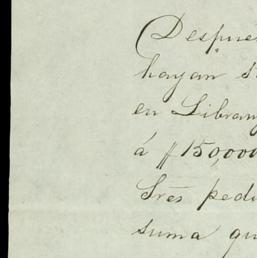 Despue
hayan s
en Libran
á $150,000
Srēs pedi
suma qu